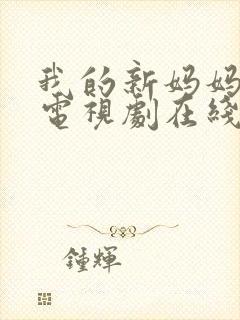 我的新妈妈
電視劇在綫
鍾輝